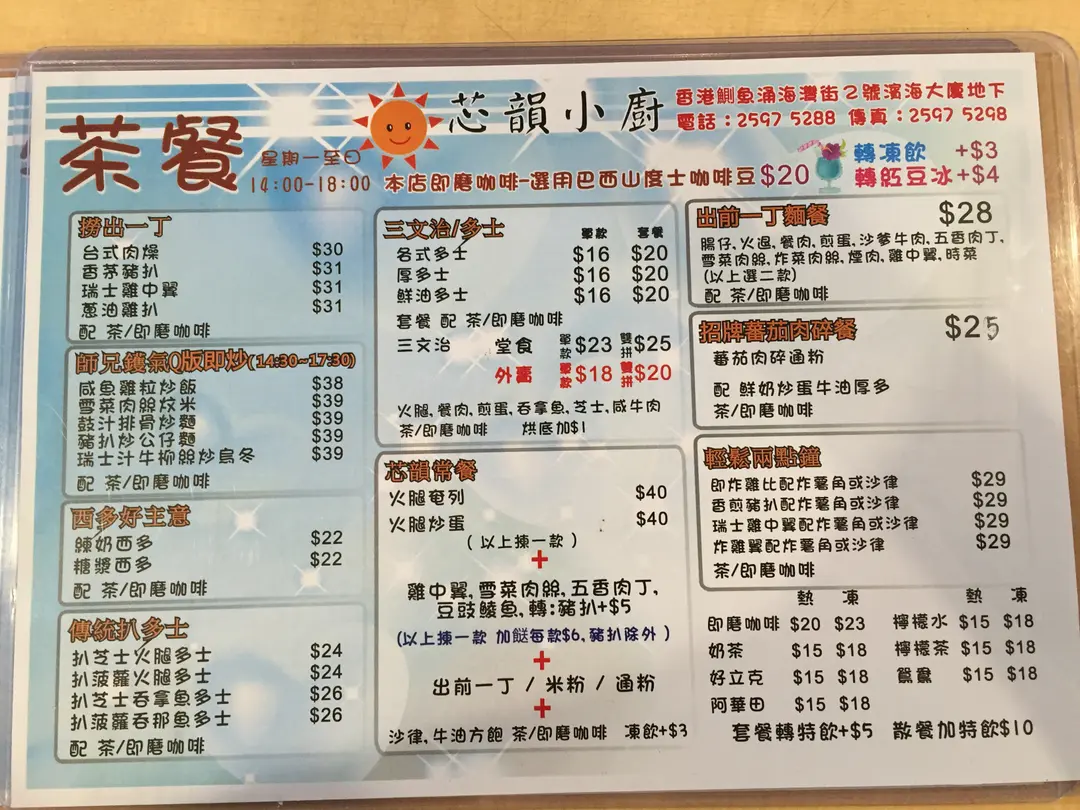 茶餐
星期一至日
14:00-18:00
芯韻小廚
香港鰂魚涌海灣街2號濱海大廈地下
電話：2597 5288 傳真：2597 5298
本店即磨咖啡-選用巴西山度士咖啡豆$20
轉凍飲 +$3
轉紅豆冰+$4
撈出一丁
台式肉燥 $30
香茅豬扒 $31
瑞士雞中翼 $31
蔥油雞扒 $31
配 茶/即磨咖啡
師兄鑊氣Q版即炒(14:30~17:30)
咸魚雞粒炒飯 $38
雪菜肉絲炆米 $39
鼓汁排骨炒麵 $39
豬扒炒公仔麵 $39
瑞士汁牛柳絲炒烏冬 $39
配 茶/即磨咖啡
西多好主意
練奶西多 $22
糖漿西多 $22
配 茶/即磨咖啡
傳統扒多士
扒芝士火腿多士 $24
扒菠蘿火腿多士 $24
扒芝士吞拿魚多士 $26
扒菠蘿吞那魚多士 $26
配 茶/即磨咖啡
三文治/多士 單款 套餐
各式多士 $16 $20
厚多士 $16 $20
鮮油多士 $16 $20
套餐 配 茶/即磨咖啡
三文治 堂食 單款 $23 雙拼 $25
外賣 單款 $18 雙拼 $20
火腿,餐肉,煎蛋,吞拿魚,芝士,咸牛肉
茶/即磨咖啡 烘底加$1
芯韻常餐
火腿奄列 $40
火腿炒蛋 $40
(以上揀一款)
+
雞中翼,雪菜肉絲,五香肉丁,
豆豉鯪魚,轉:豬扒+$5
(以上揀一款 加餸每款$6,豬扒除外)
+
出前一丁 / 米粉 / 通粉
+
沙律,牛油方飽 茶/即磨咖啡 凍飲+$3
出前一丁麵餐 $28
腸仔,火腿,餐肉,煎蛋,沙爹牛肉,五香肉丁,
雪菜肉絲,炸菜肉絲,煙肉,雞中翼,時菜
(以上選二款)
配 茶/即磨咖啡
招牌蕃茄肉碎餐 $25
蕃茄肉碎通粉
配 鮮奶炒蛋牛油厚多
茶/即磨咖啡
輕鬆兩點鐘
即炸雞比配炸薯角或沙律 $29
香煎豬扒配炸薯角或沙律 $29
瑞士雞中翼配炸薯角或沙律 $29
炸雞翼配炸薯角或沙律 $29
茶/即磨咖啡
熱 凍 熱 凍
即磨咖啡 $20 $23 檸檬水 $15 $18
奶茶 $15 $18 檸檬茶 $15 $18
好立克 $15 $18 鴛鴦 $15 $18
阿華田 $15 $18
套餐轉特飲+$5 散餐加特飲$10